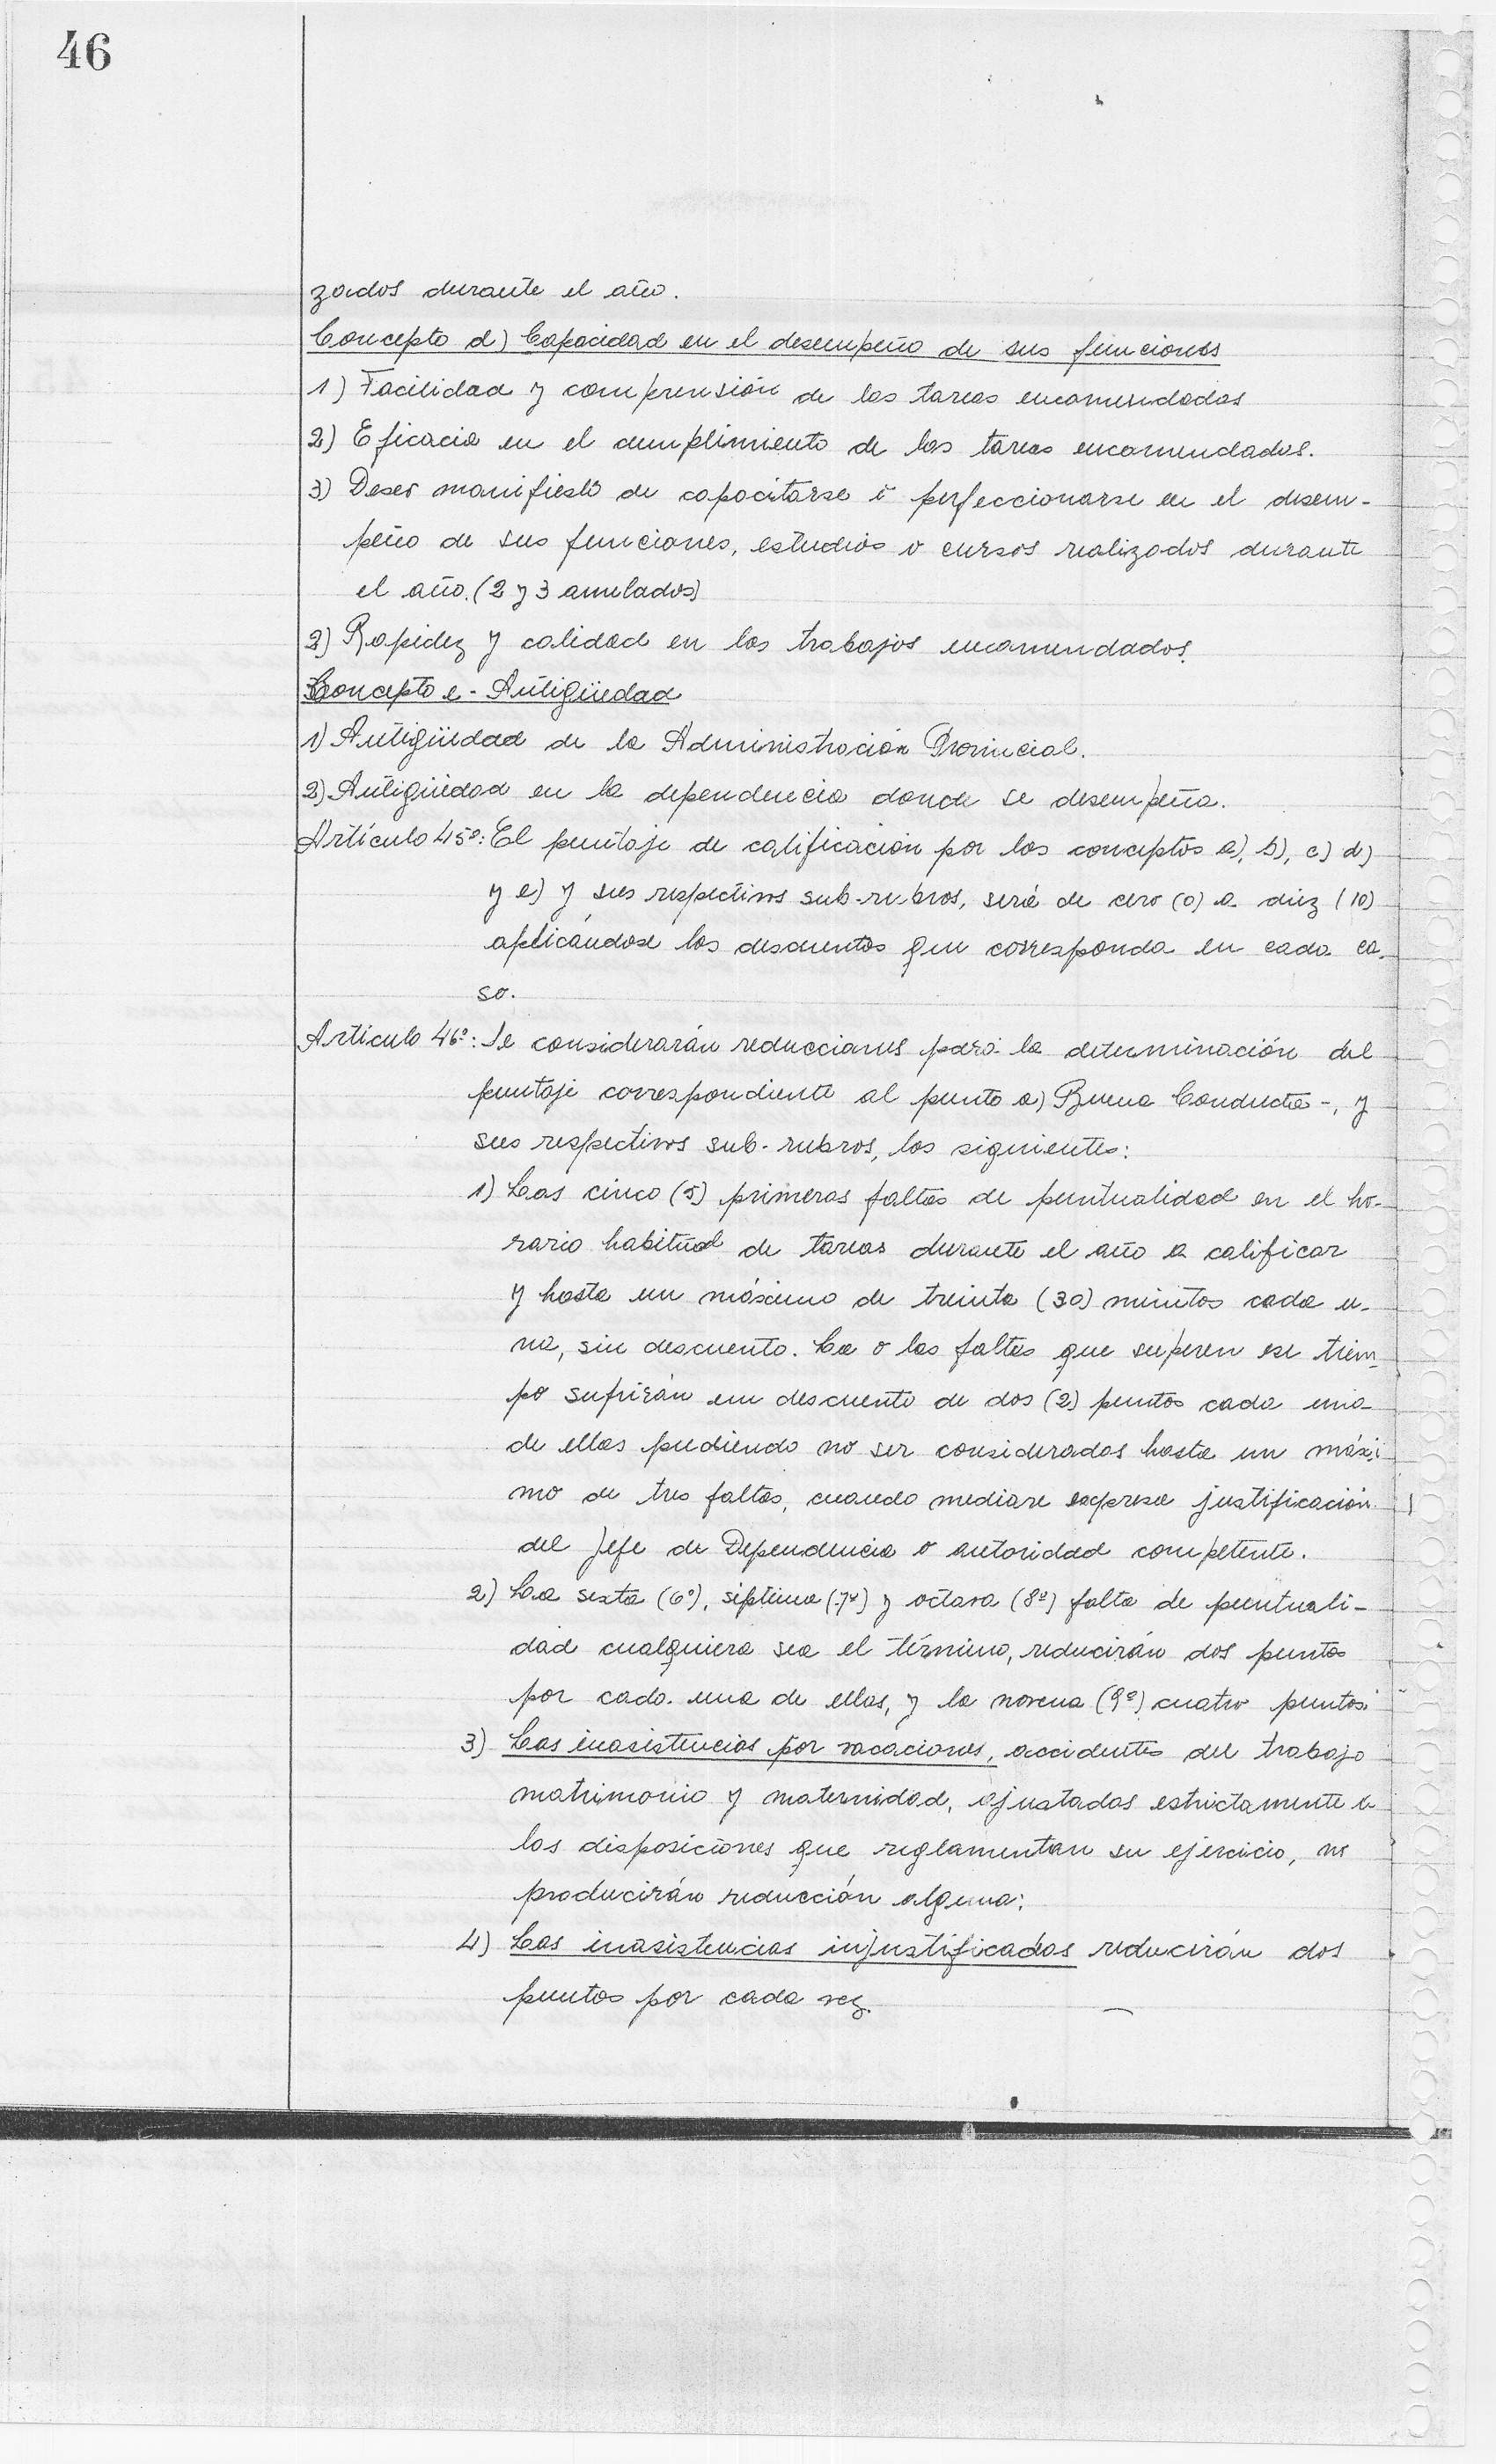 46
zados durante el año.
Concepto d) Capacidad en el desempeño de sus funciones
1) Facilidad y comprensión de las tareas encomendadas
2) Eficacia en el cumplimiento de las tareas encomendadas.
3) Deseo manifiesto de capacitarse i perfeccionarse en el desem-
peño de sus funciones, estudios o cursos realizados durante
el año. (2 y 3 anulados)
2) Rapidez y calidad en los trabajos encomendados.
Concepto e - Antigüedad
1) Antigüedad de la Administración Provincial.
2) Antigüedad en la dependencia donde se desempeña.
Artículo 45º: El puntaje de calificación por los conceptos a), b), c) d)
y e) y sus respectivos sub-rubros, será de cero (0) a diez (10)
aplicándose los descuentos que corresponda en cada ca-
so.
Artículo 46º: Se considerarán reducciones para la determinación del
puntaje correspondiente al punto a) Buena Conducta -, y
sus respectivos sub-rubros, los siguientes:
1) Las cinco (5) primeras faltas de puntualidad en el ho-
rario habitual de tareas durante el año a calificar
y hasta un máximo de treinta (30) minutos cada u-
na, sin descuento. La o las faltas que superen ese tiem-
po sufrirán un descuento de dos (2) puntos cada una
de ellas pudiendo no ser consideradas hasta un máxi-
mo de tres faltas, cuando mediare expresa justificación
del Jefe de Dependencia o autoridad competente.
2) La sexta (6º), séptima (7º) y octava (8º) falta de puntuali-
dad cualquiera sea el término, reducirán dos puntos
por cada una de ellas, y la novena (9º) cuatro puntos.
3) Las inasistencias por vacaciones, accidentes del trabajo
matrimonio y maternidad, ajustadas estrictamente a
las disposiciones que reglamentan su ejercicio, no
producirán reducción alguna:
4) Las inasistencias injustificadas reducirán dos
puntos por cada vez.